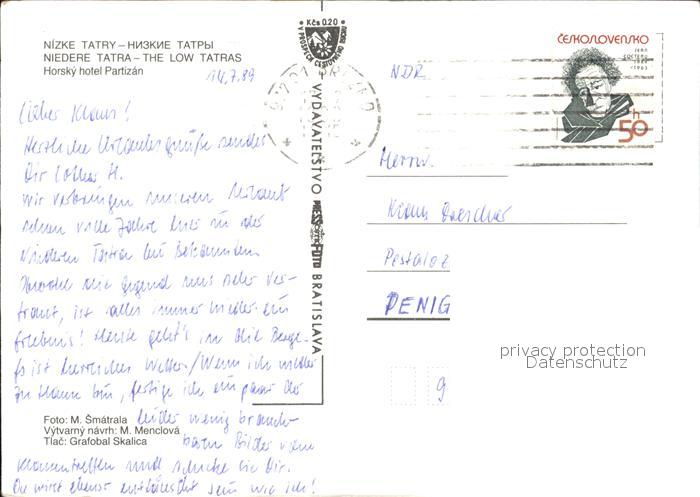 NÍZKE TATRY – НИЗКИЕ ТАТРЫ
NIEDERE TATRA – THE LOW TATRAS
Horský hotel Partizán
14.7.89
Lieber Klaus!
Herzliche Urlaubsgrüße sendet
Dir Lothar H.
Wir verbringen unseren Urlaub
schon viele Jahre hier in der
Niederen Tatra bei Bekannten
Obwohl die Gegend uns sehr ver-
traut, ist alles immer wieder ein
Erlebnis! Heute geht's in die Berge.
Es ist herrliches Wetter/Wenn ich wieder
zu Hause bin, fertige ich ein paar der
leider wenig brauch-
baren Bilder vom
Klassentreffen und schicke sie Dir.
Du wirst ebenso enttäuscht sein wie ich!
Foto: M. Šmátrala
Výtvarný návrh: M. Menclová
Tlač: Grafobal Skalica
Kčs 0.20
V PROSPECH CESTOVNÉHO RUCHU
VYDAVATEĽSTVO PRESSFOTO BRATISLAVA
ČESKOSLOVENSKO
JEAN
COCTEAU
1889
1963
50 h
NDR
Herrn
Klaus
Pestaloz
PENIG
9
privacy protection
Datenschutz